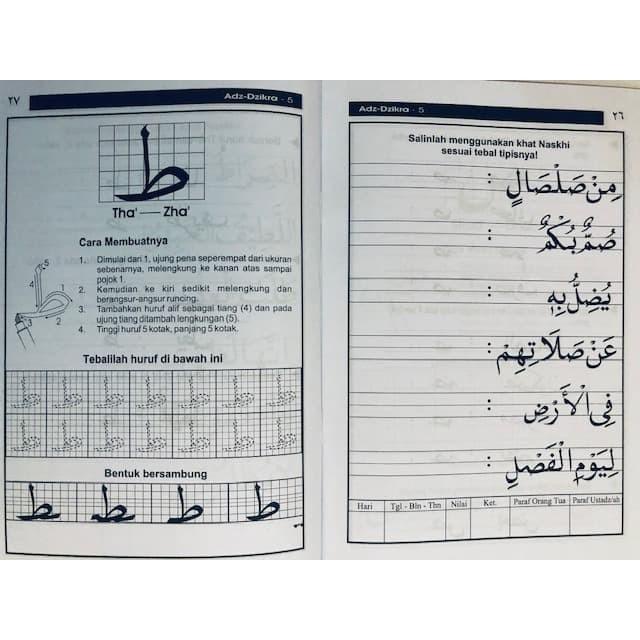 Adz-Dzikra - 5 ٢٦
Salinlah menggunakan khat Naskhi
sesuai tebal tipisnya!
مِنْ صَلْصَالٍ :
صُمٌّ بُكْمٌ :
يُضِلُّ بِهِ :
عَنْ صَلَاتِهِمْ :
فِى الْأَرْضِ :
لِيَوْمِ الْفَصْلِ :
Hari Tgl - Bln - Thn Nilai Ket. Paraf Orang Tua Paraf Ustadz/ah
٢٧ Adz-Dzikra - 5
ط
Tha' — Zha'
Cara Membuatnya
1. Dimulai dari 1, ujung pena seperempat dari ukuran
sebenarnya, melengkung ke kanan atas sampai
pojok 1.
2. Kemudian ke kiri sedikit melengkung dan
berangsur-angsur runcing.
3. Tambahkan huruf alif sebagai tiang (4) dan pada
ujung tiang ditambah lengkungan (5).
4. Tinggi huruf 5 kotak, panjang 5 kotak.
5
4
1
3 2
Tebalilah huruf di bawah ini
ط ط ط ط ط ط ط
ط ط ط ط ط ط ط
Bentuk bersambung
ط ط ـطـ ـطـ